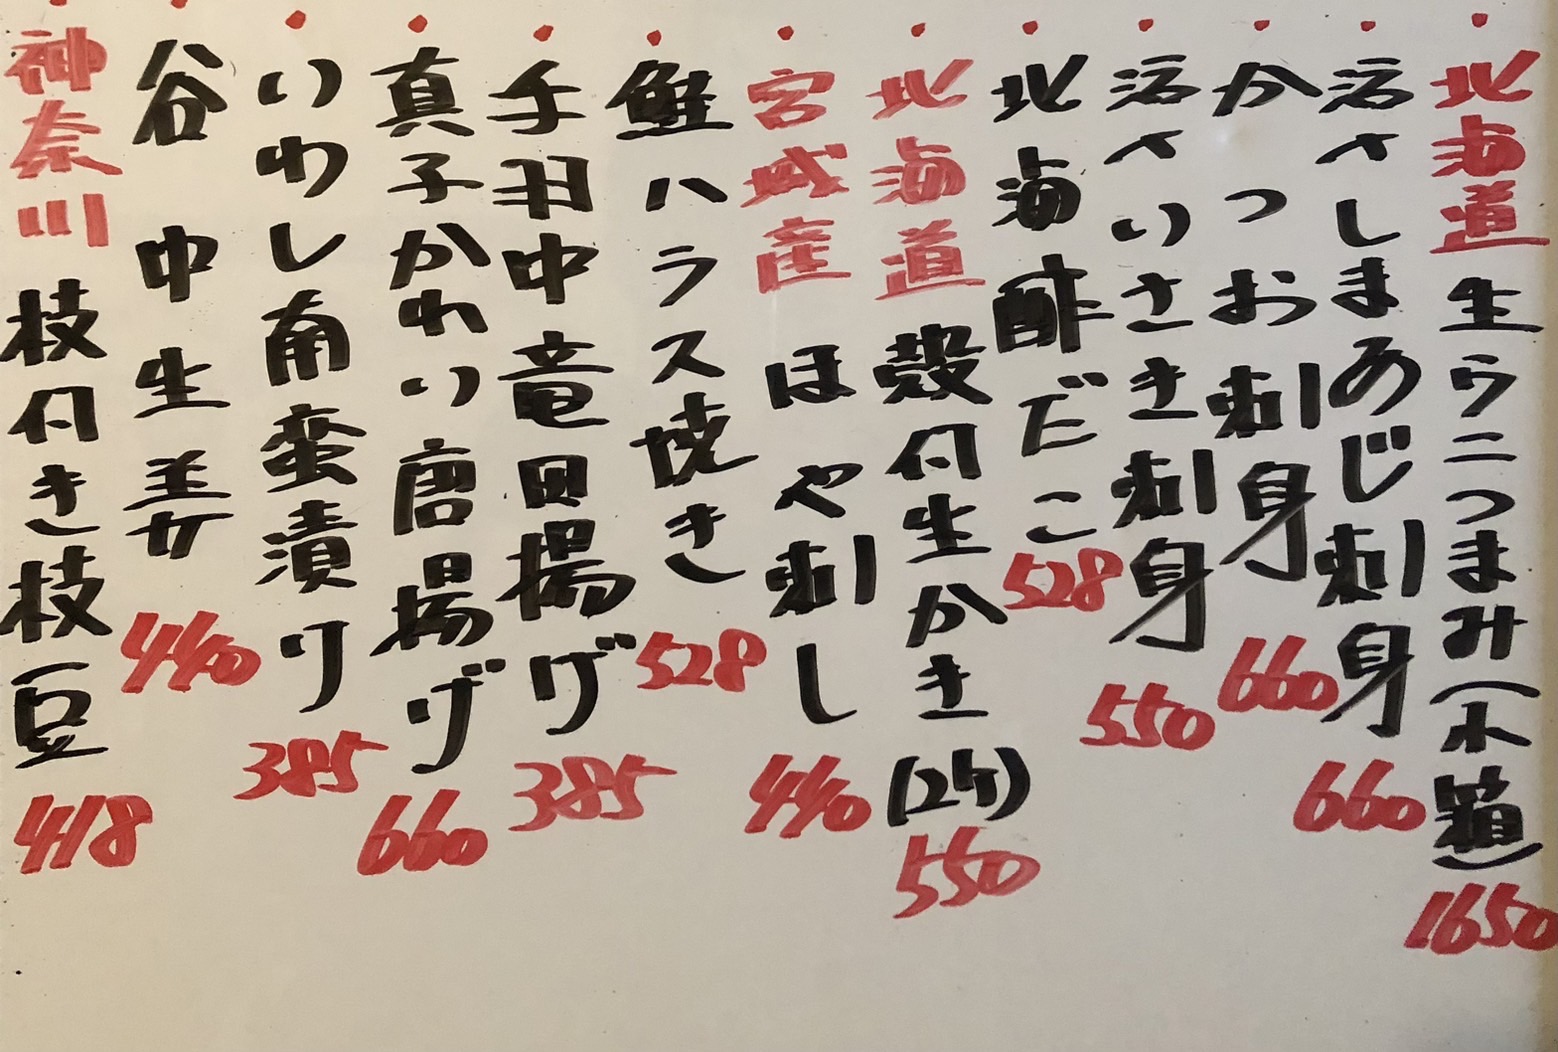 北海道生ウニつまみ(木箱) 1650
活〆しまあじ刺身 660
かつお刺身 660
活〆いさき刺身 550
北海酢だこ 528
北海道殻付生かき(2ケ) 550
宮城産ほや刺し 440
鮭ハラス焼き 528
手羽中竜田揚げ 385
真子かれい唐揚げ 660
いわし南蛮漬け 385
谷中生姜 440
神奈川枝付き枝豆 418